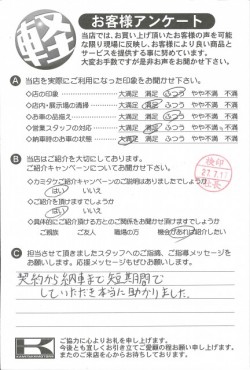 軽
お客様アンケート
当店では、お買い上げ頂いたお客様の声を可能
な限り現場に反映し、お客様により良い商品と
サービスを提供する事に努めています。
大変お手数ですが是非お声をお聞かせ下さい。
A 当店を実際にご利用になった印象をお聞かせ下さい。
◇店の印象 大満足 満足 ふつう やや不満 不満
◇店内・展示場の清掃 大満足 満足 ふつう やや不満 不満
◇お車の品揃え 大満足 満足 ふつう やや不満 不満
◇営業スタッフの対応 大満足 満足 ふつう やや不満 不満
◇納車時のお車の状態 大満足 満足 ふつう やや不満 不満
B 当店はご紹介を大切にしております。
ご紹介キャンペーンについてお聞かせ下さい。
◇カミタケご紹介キャンペーンのご説明はありましたでしょうか
はい いいえ
◇ご紹介を頂けますでしょうか
はい いいえ
◇具体的にご紹介頂ける方とのご関係をお聞かせ頂けますでしょうか
ご親族 ご友人 職場の方 機会があれば紹介したい
検印
27.7.1
店長
C 担当させて頂きましたスタッフへのご指摘、ご指導メッセージを
お願いします。応援メッセージもぜひお願いします。
契約から納車まで短期間で
していただき本当に助かりました。
K
ご協力に心よりお礼を申し上げます。
今後とも宜しくお引き立てご愛顧の程お願い申し上げます。
またのご来店を心からお待ちしております。